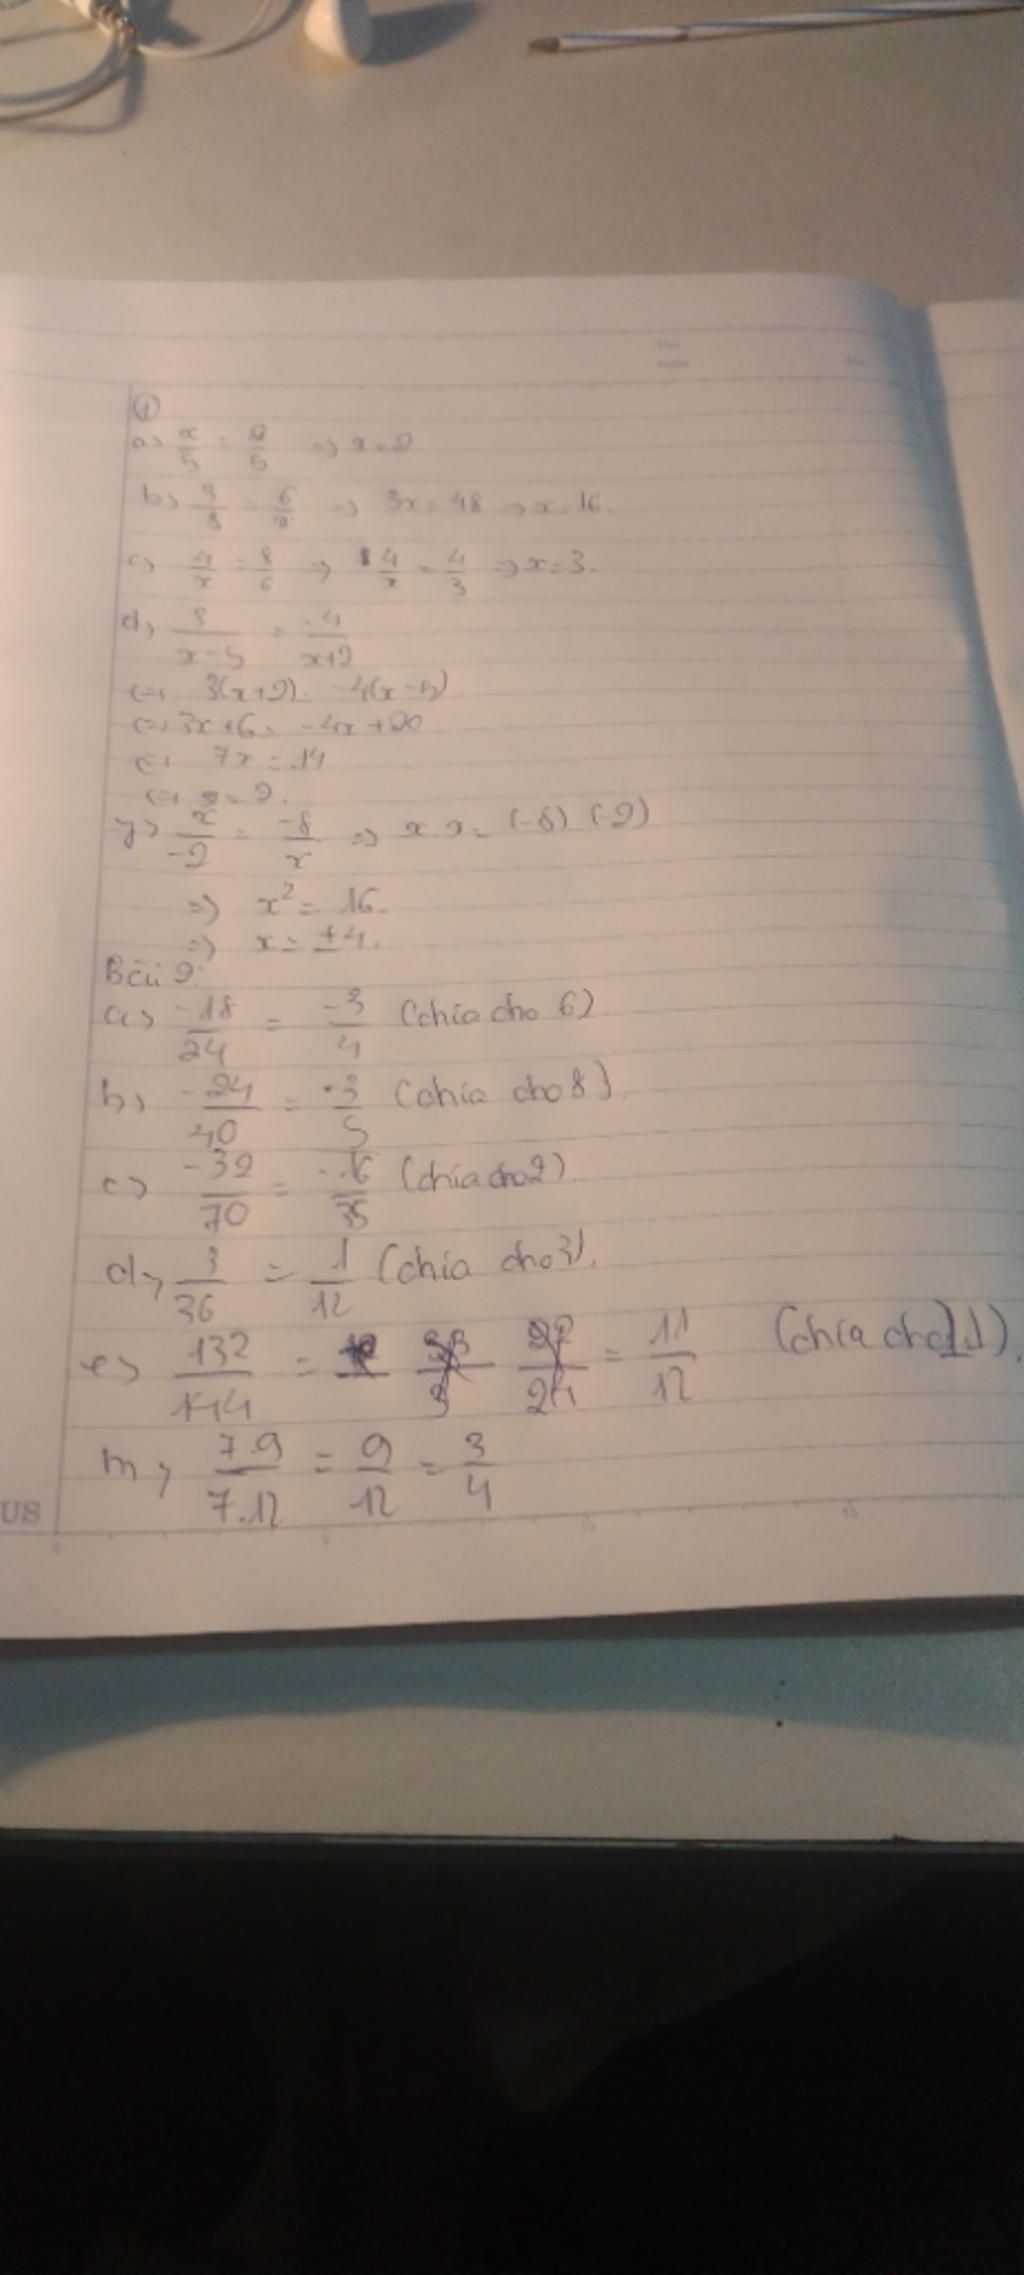 ①
a) x/5 = 2/5 => x = 2
b) 3/8 = 6/x => 3x = 48 => x = 16.
c) 4/x = 8/6 => 4/x = 4/3 => x = 3.
d) 3/(x-5) = -4/(x+2)
<=> 3(x+2) = -4(x-5)
<=> 3x+6 = -4x+20
<=> 7x = 14
<=> x = 2.
y) x/-2 = -8/x => x.x = (-8).(-2)
=> x² = 16.
=> x = ±4.
Bài 2:
a) -18/24 = -3/4 (chia cho 6)
b) -24/40 = -3/5 (chia cho 8).
c) -32/70 = -16/35 (chia cho 2).
d) 3/36 = 1/12 (chia cho 3).
e) 132/144 = 11/12 (chia cho 11).
m) 7.9/7.12 = 9/12 = 3/4
US
0 5 10 15